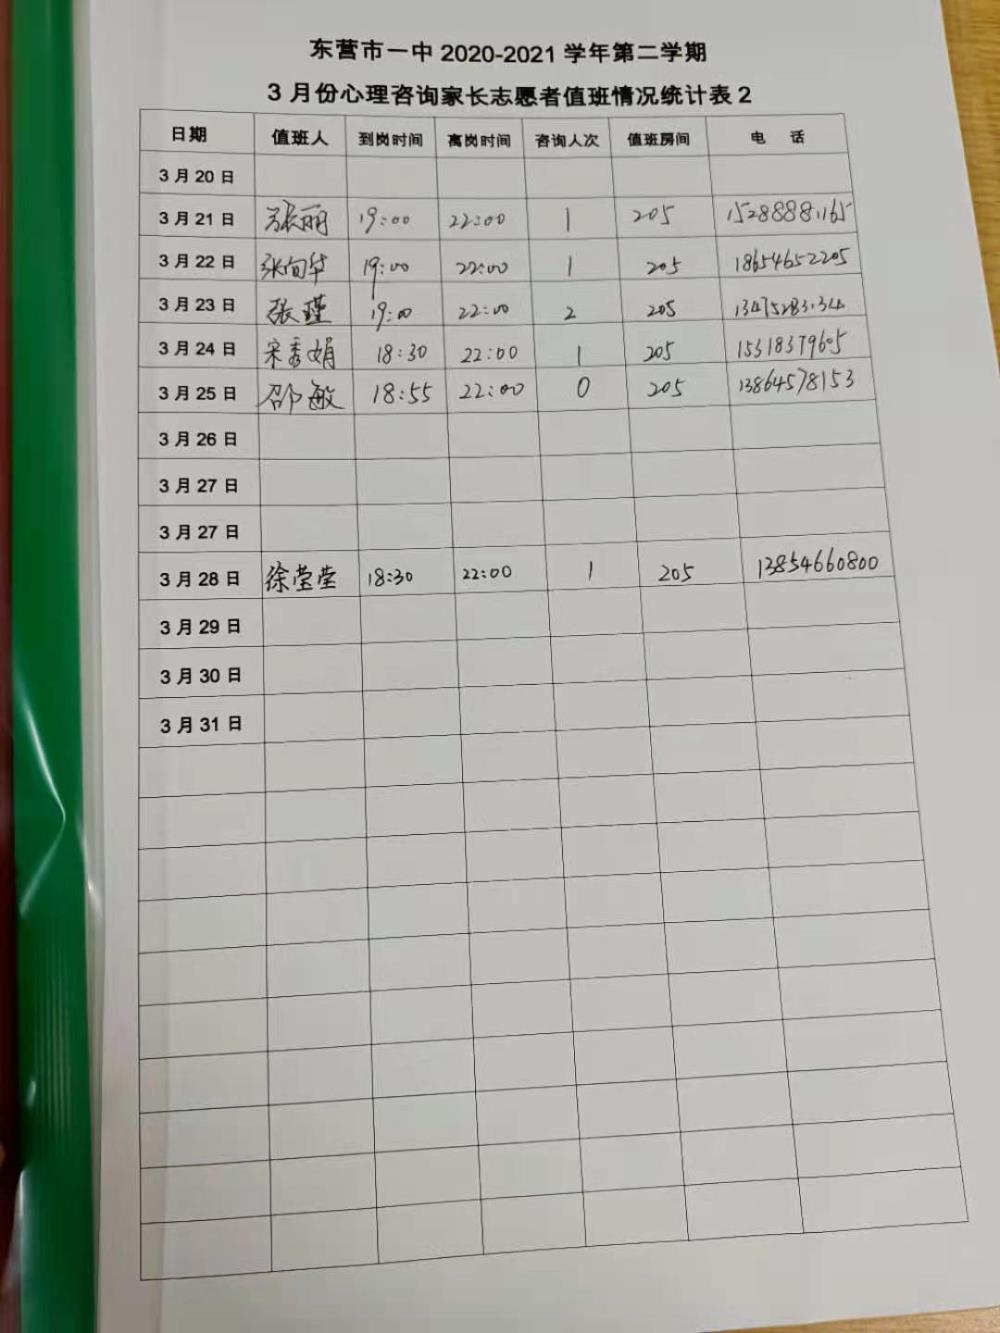 东营市一中 2020-2021 学年第二学期
3 月份心理咨询家长志愿者值班情况统计表 2
日期 值班人 到岗时间 离岗时间 咨询人次 值班房间 电 话
3 月 20 日
3 月 21 日 张丽 19:00 22:00 1 205 15288881165
3 月 22 日 张向华 19:00 22:00 1 205 18654652205
3 月 23 日 张瑾 19:00 22:00 2 205
3 月 24 日 宋秀娟 18:30 22:00 1 205 15318379605
3 月 25 日 邵敏 18:55 22:00 0 205 13864578153
3 月 26 日
3 月 27 日
3 月 27 日
3 月 28 日 徐莹莹 18:30 22:00 1 205 13854660800
3 月 29 日
3 月 30 日
3 月 31 日